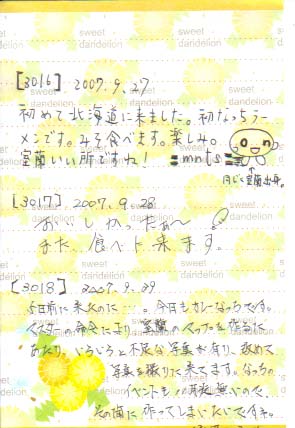 sweet dandelion
[3016] 2007.9.27
初めて北海道に来ました。初なっちラー
メンです。みそ食べます。楽しみ。
室蘭いい所ですね!
[3017] 2007.9.28
おいしかったぁ〜
また、食べに来ます。
[3018] 2007.9.29
5日前に来たのに…。今日もカレーなっちです。
マスターの命令により室蘭のマップを作るに
あたり、いろいろと不足な写真が有り、改めて
写真を撮りに来てます。なっちの
イベントも
その間に作ってしまいたいですネ。